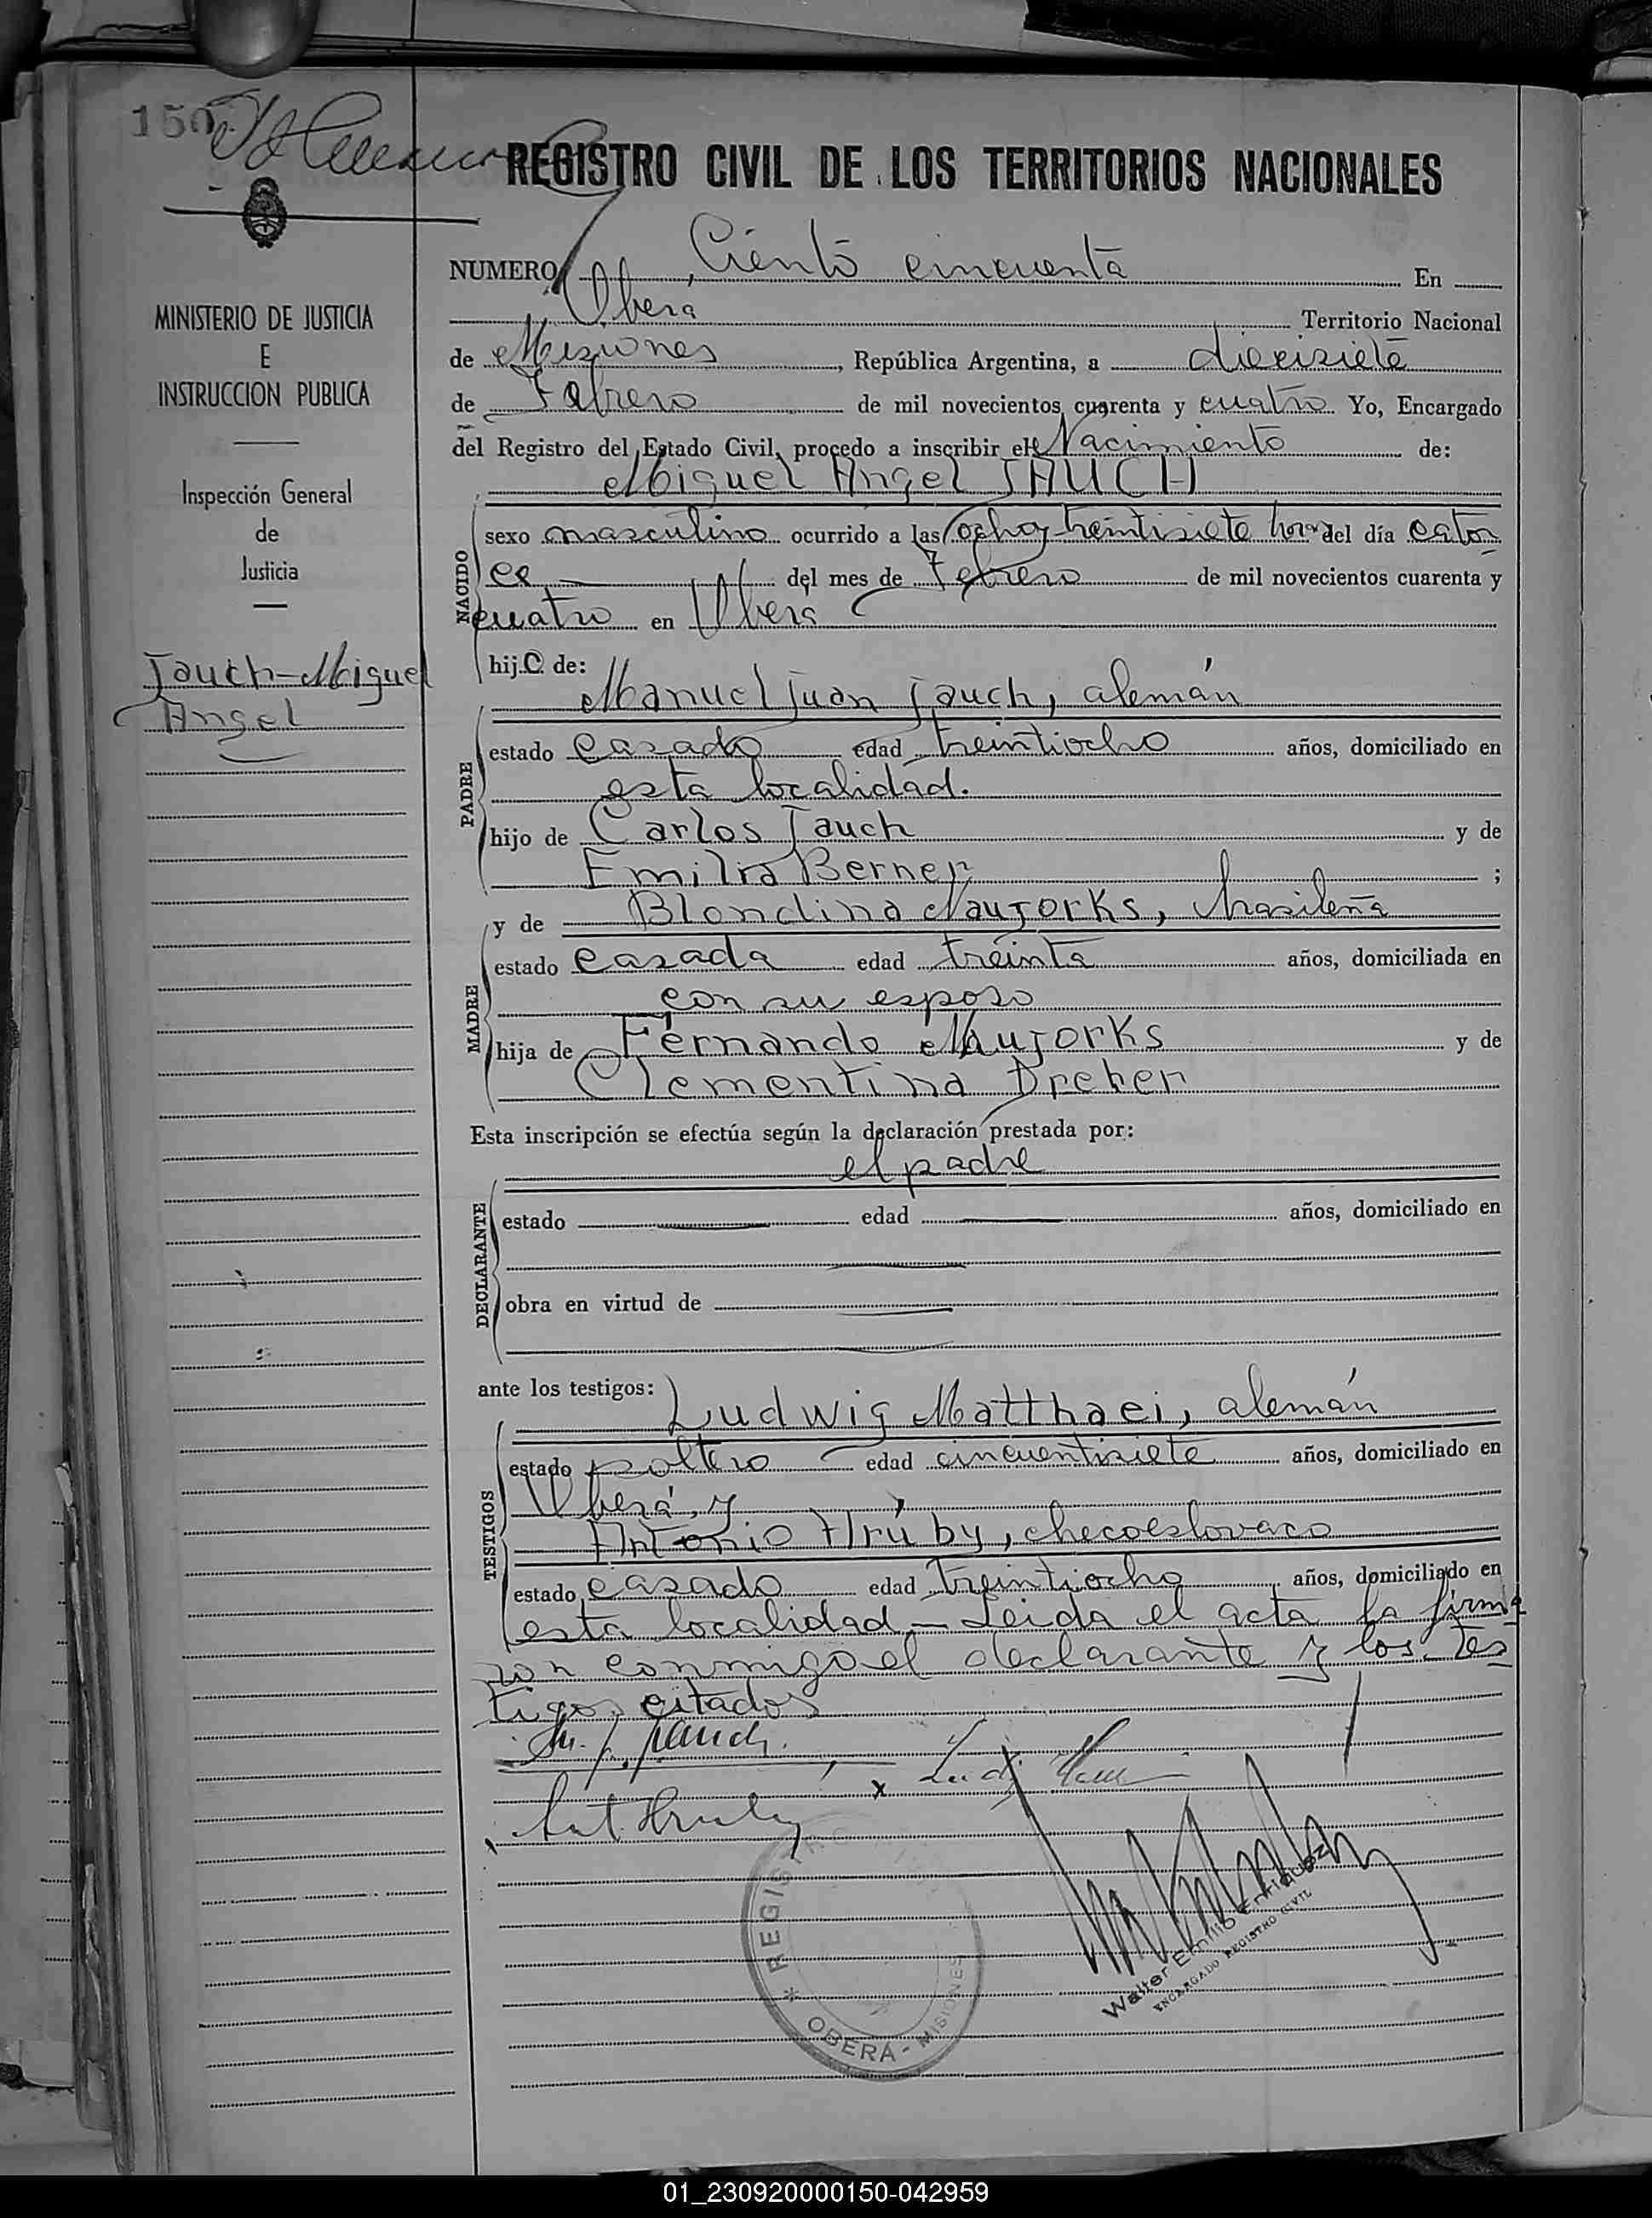 150
REGISTRO CIVIL DE LOS TERRITORIOS NACIONALES
NUMERO Ciento cincuenta En
Oberá Territorio Nacional
de Misiones, República Argentina, a diecisiete
de Febrero de mil novecientos cuarenta y cuatro Yo, Encargado
del Registro del Estado Civil, procedo a inscribir el Nacimiento de:
Miguel Angel JAUCH
sexo masculino ocurrido a las ocho y treintisiete horas del día cator
ce del mes de Febrero de mil novecientos cuarenta y
cuatro en Oberá
hijo de:
Manuel Juan Jauch, alemán
estado casado edad treintiocho años, domiciliado en
esta localidad.
hijo de Carlos Jauch y de
Emilia Berner ;
y de Blondina Naujorks, brasileña
estado casada edad treinta años, domiciliada en
con su esposo
hija de Fernando Naujorks y de
Clementina Dreher
Esta inscripción se efectúa según la declaración prestada por:
el padre
estado edad años, domiciliado en
obra en virtud de
ante los testigos:
Ludwig Matthaei, alemán
estado soltero edad cincuentisiete años, domiciliado en
Oberá, y
Antonio Hrúby, checoeslovaco
estado casado edad treintiocho años, domiciliado en
esta localidad.- Leida el acta la firma
ron conmigo el declarante y los tes
tigos citados
Jauch.
Ant Hruby
NACIDO
PADRE
MADRE
DECLARANTE
TESTIGOS
MINISTERIO DE JUSTICIA
E
INSTRUCCION PUBLICA
Inspección General
de
Justicia
Jauch-Miguel
Angel
REGISTRO
OBERÁ - MISIONES
Walter Emilio Enriquez
ENCARGADO REGISTRO CIVIL
01_230920000150-042959